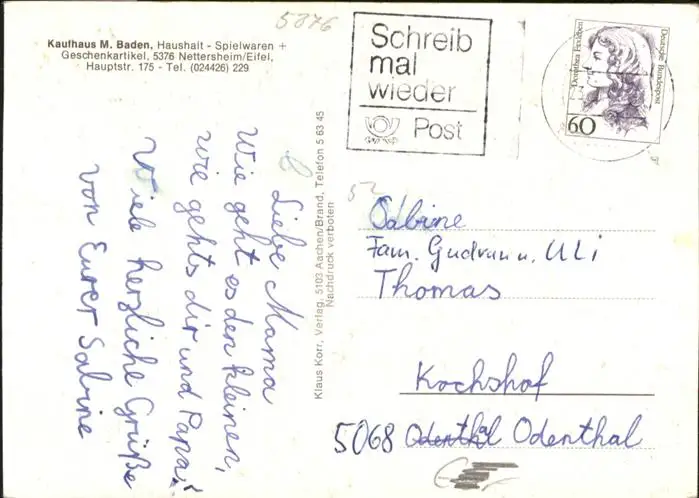 5876
Kaufhaus M. Baden, Haushalt - Spielwaren +
Geschenkartikel, 5376 Nettersheim/Eifel,
Hauptstr. 175 - Tel. (024426) 229
Liebe Mama
Wie geht es den kleinen,
wie gehts dir und Papa?
Viele herzliche Grüße
von Eurer Sabine
Klaus Korr, Verlag, 5103 Aachen/Brand, Telefon 5 63 45
Nachdruck verboten
Schreib
mal
wieder
Post
Dorothea Erxleben
Deutsche Bundespost
60
52
Sabine
Fam. Gudrun u. ULi
Thomas
Kochshof
5068 Odenthal Odenthal